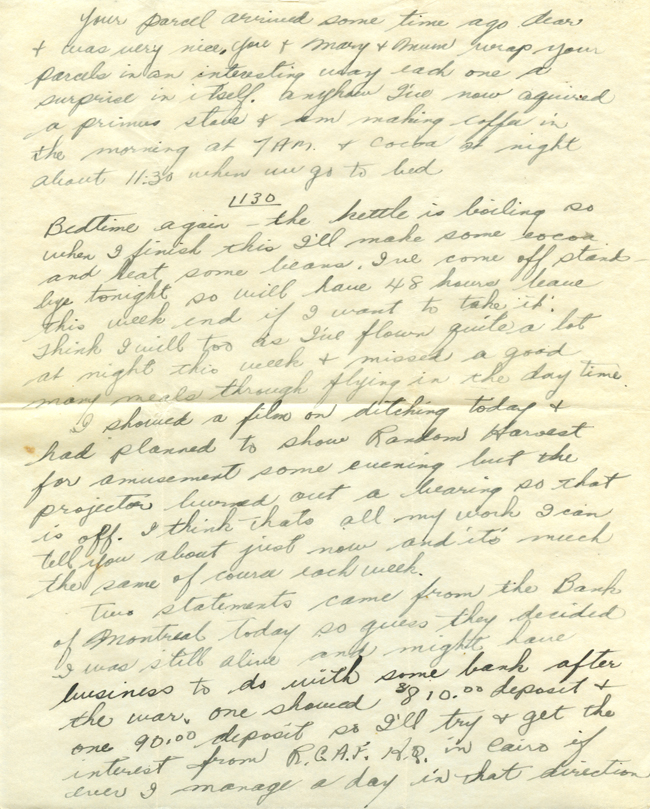 Your parcel arrived some time ago dear
& was very nice, you & Mary & Mum wrap your
parcels in an interesting way each one a
surprise in itself. Anyhow I've now aquired
a primus stove & am making coffee in
the morning at 7 AM. & cocoa at night
about 11:30 when we go to bed
1130
Bedtime again – the kettle is boiling so
when I finish this I'll make some cocoa
and heat some beans. I've come off stand-
bye tonight so will have 48 hours leave
this week end if I want to take it.
Think I will too as I've flown quite a lot
at night this week & missed a good
many meals through flying in the day time.
I showed a film on ditching today &
had planned to show Random Harvest
for amusement some evening but the
projector burned out a bearing so that
is off. I think thats all my work I can
tell you about just now and it's much
the same of course each week.
Two statements came from the Bank
of Montreal today so guess they decided
I was still alive and might have
business to do with some bank after
the war. One showed $810.00 deposit &
one 90.00 deposit so I'll try & get the
interest from R.C.A.F. H.Q. in Cairo if
ever I manage a day in that direction